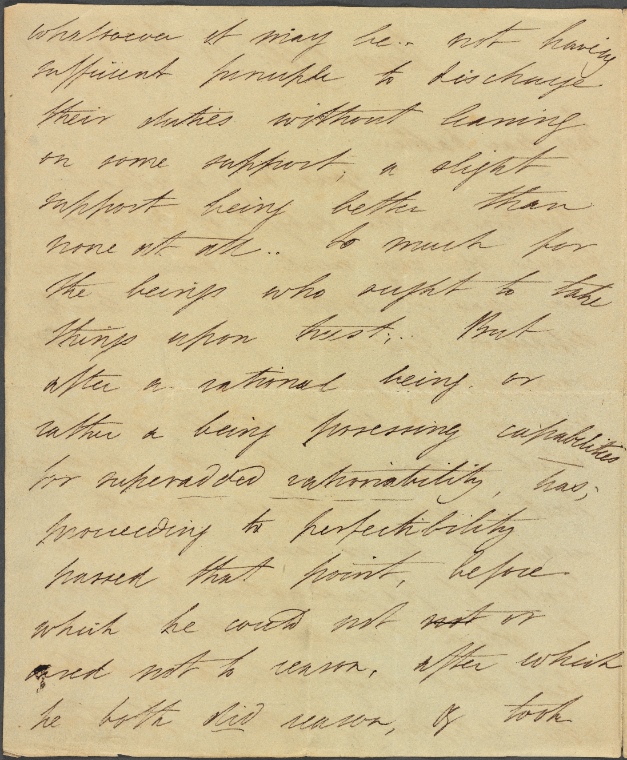 whatsoever it may be.. not having
sufficient principle to discharge
their duties without leaning
on some support, a slight
support being better than
none at all.. So much for
the beings who ought to take
things upon trust... But
after a rational being. or
rather a being possessing capabilities
for superadded rationability, has,
proceeding to perfectibility
passed that point, before
which he could not not or
need not to reason, after which
he both did reason, & took